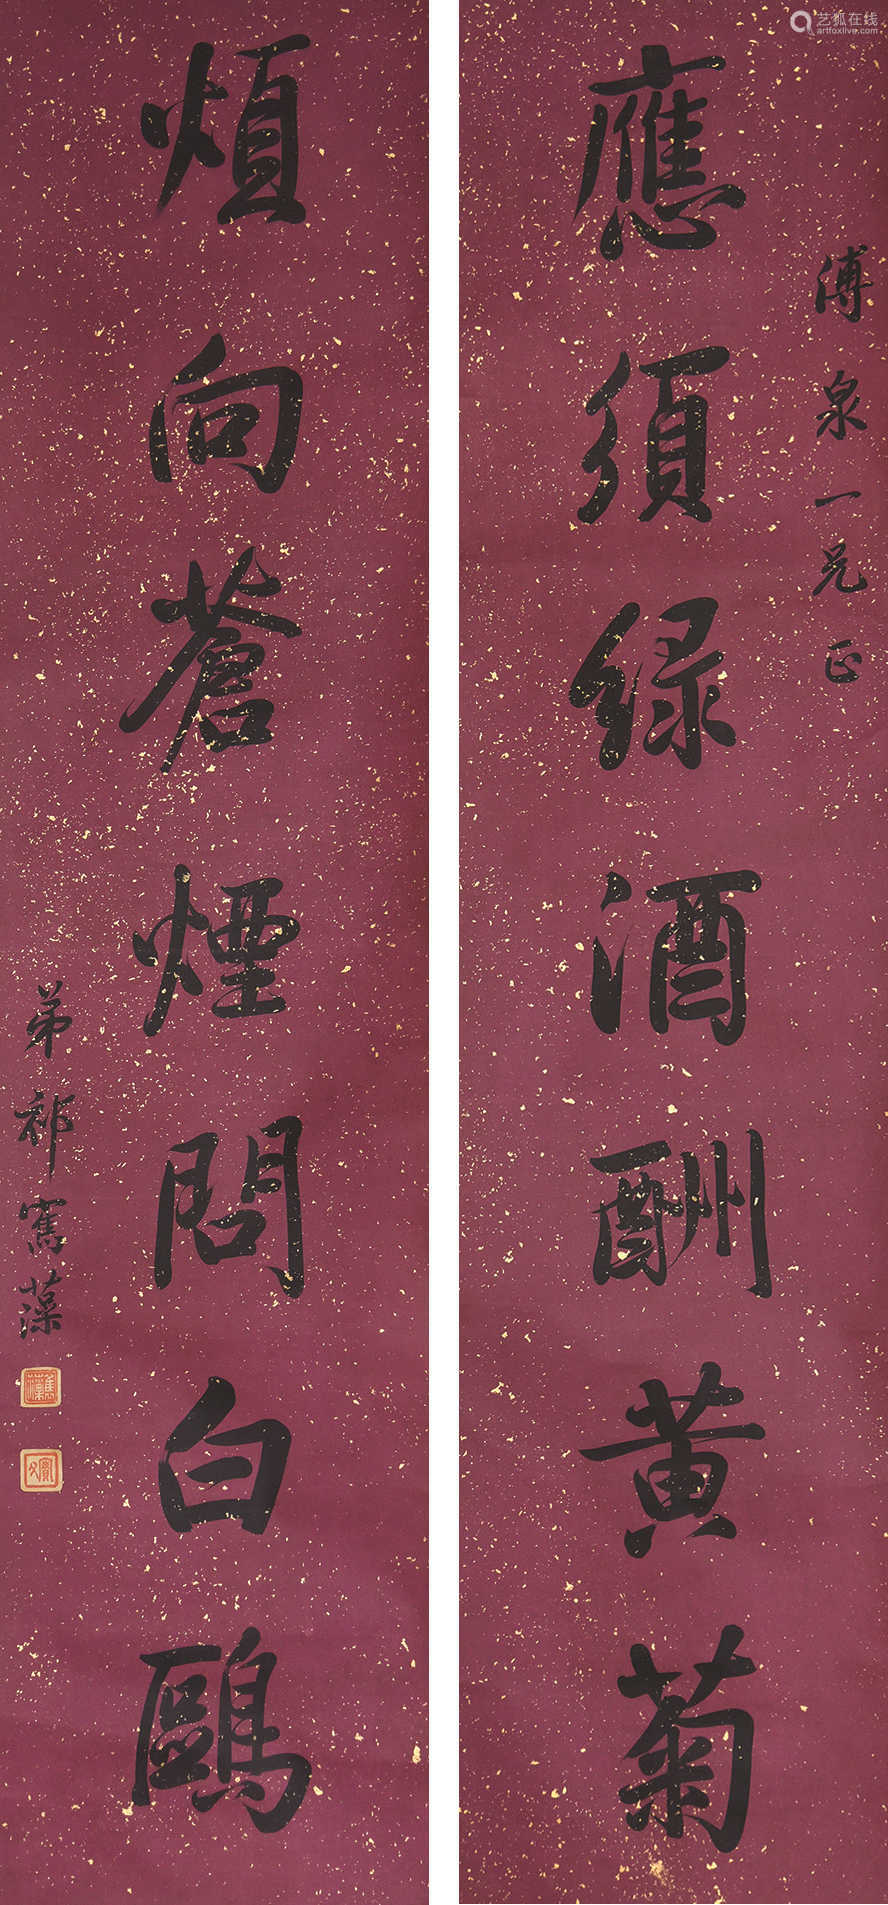 應須綠酒酬黃菊
溥泉一兄正
煩向蒼煙問白鷗
弟祁寯藻
艺狐在线
artfoxlive.com